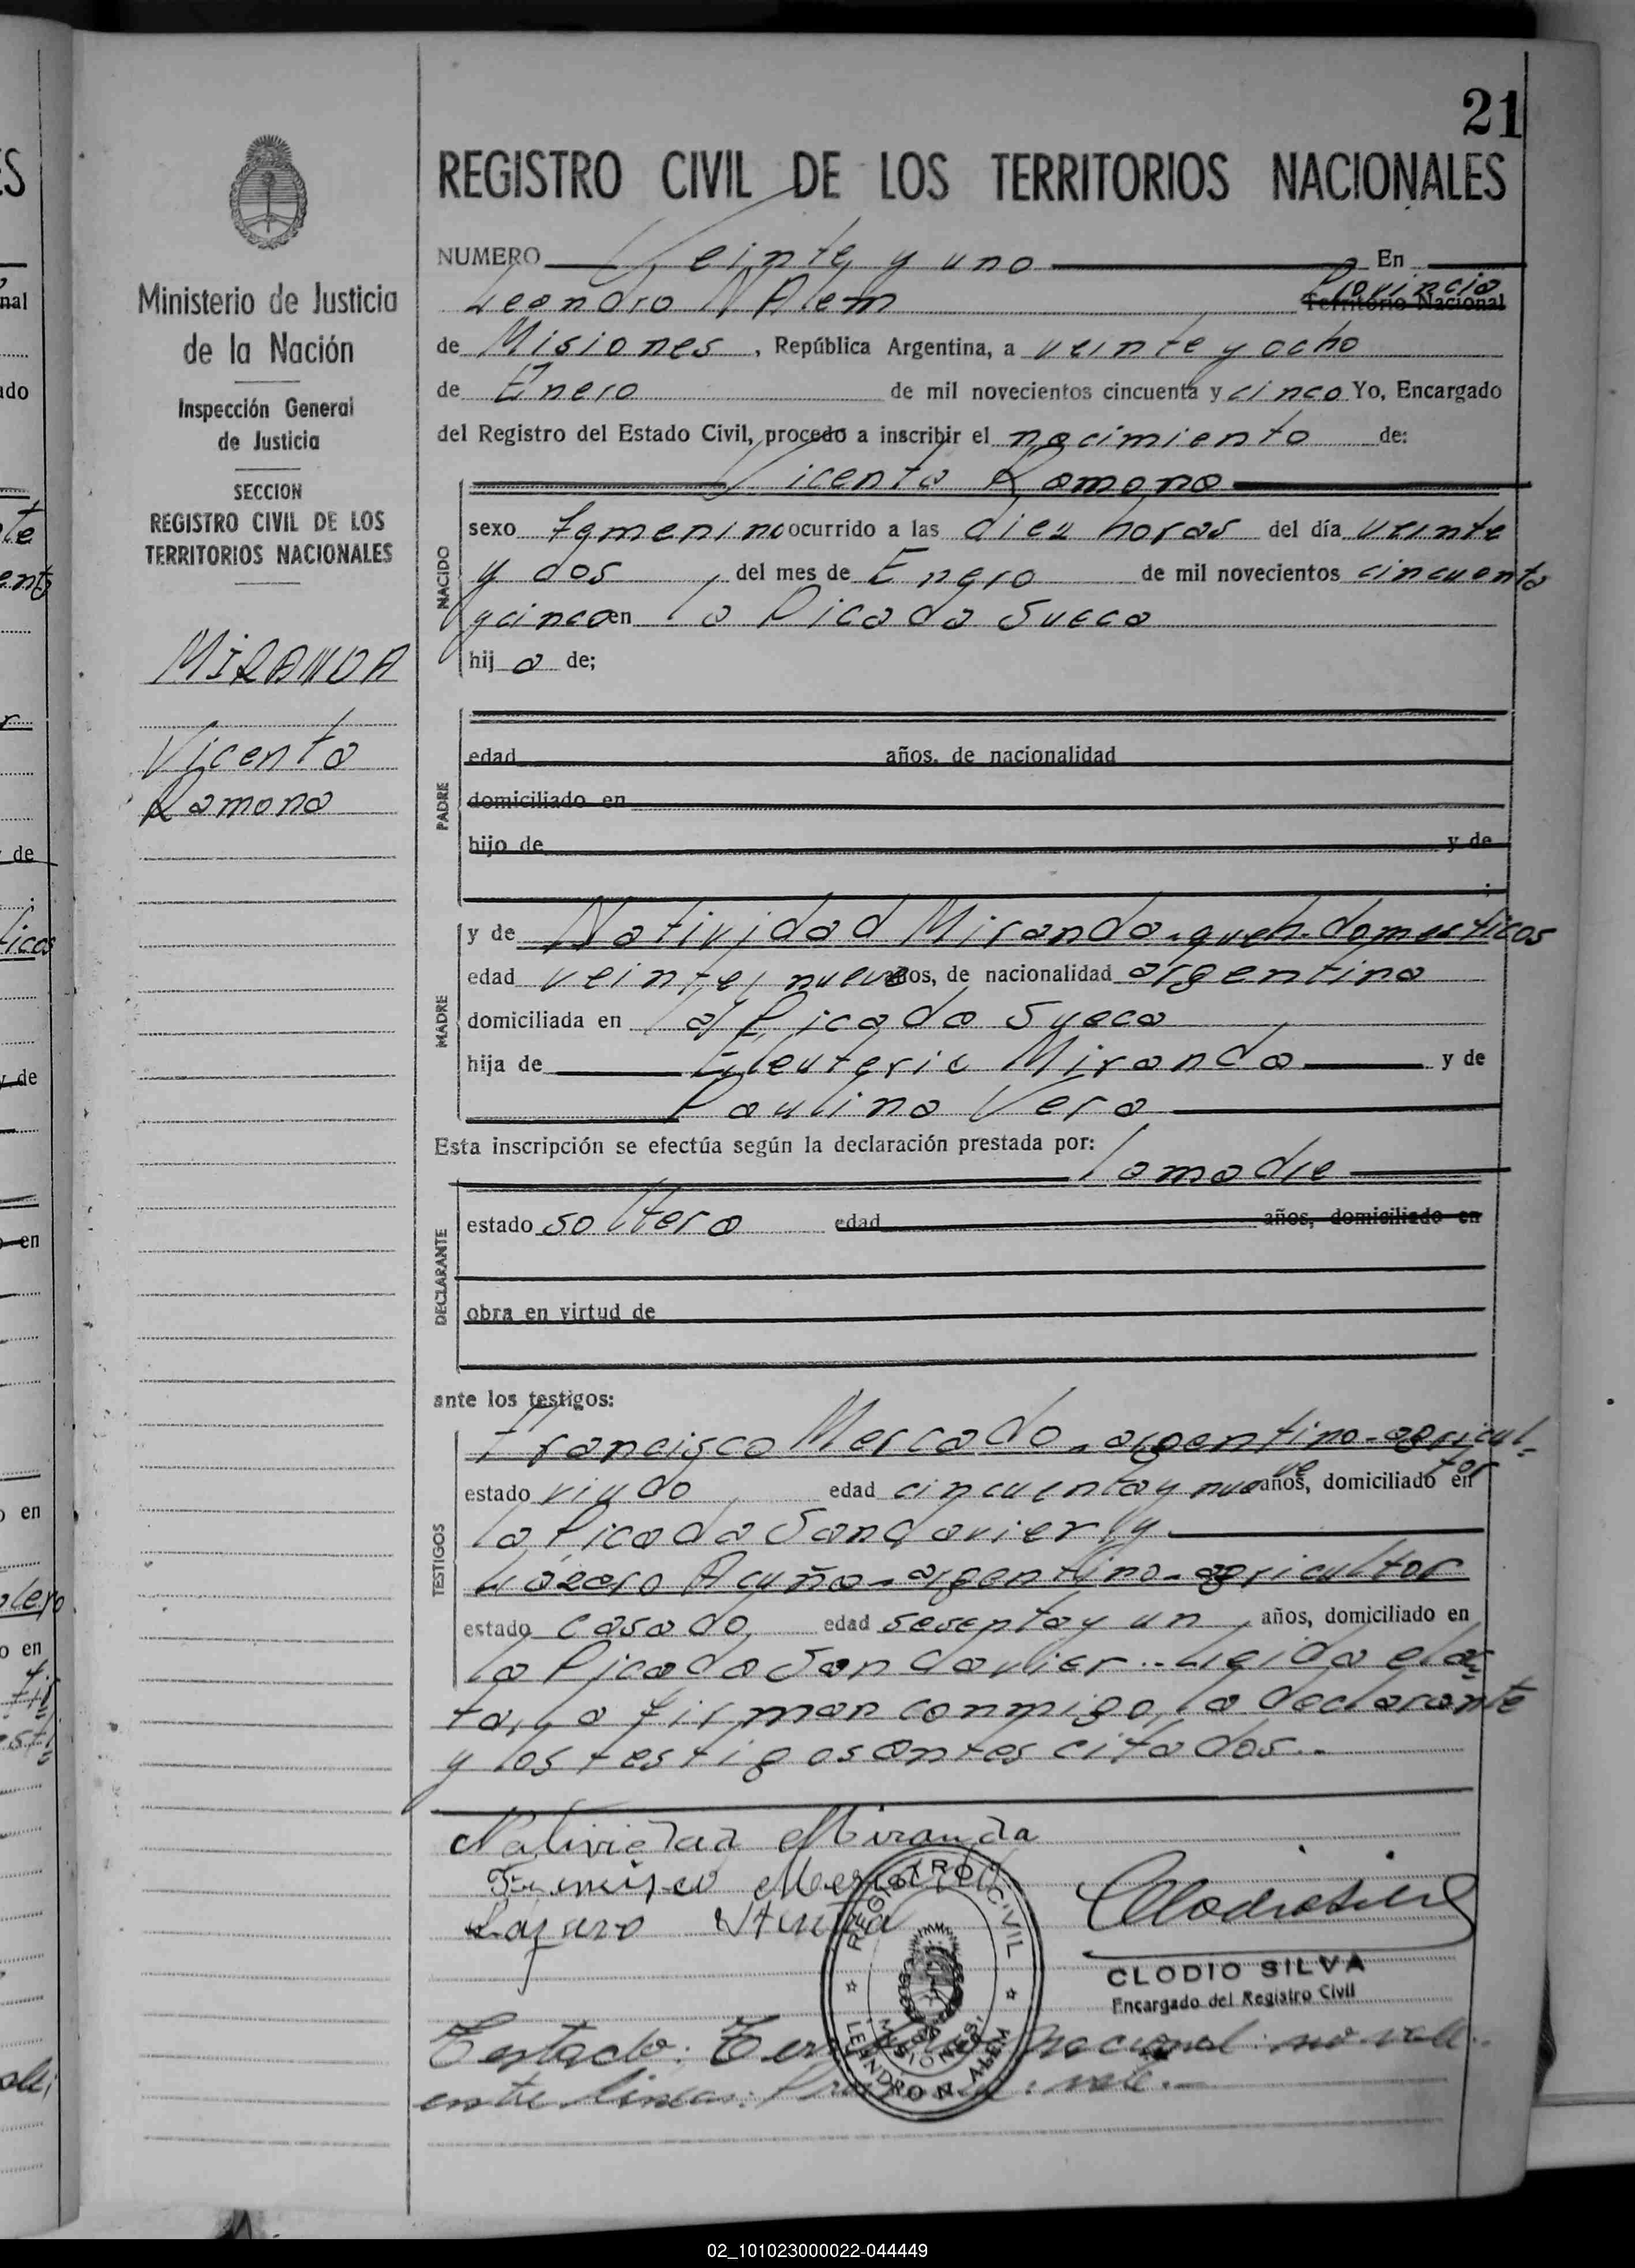 21
REGISTRO CIVIL DE LOS TERRITORIOS NACIONALES
NUMERO Veinte y uno En
Leandro N Alem Provincia Territorio Nacional
de Misiones, República Argentina, a veinte y ocho
de Enero de mil novecientos cincuenta y cinco Yo, Encargado
del Registro del Estado Civil, procedo a inscribir el nacimiento de:
Vicenta Ramona
NACIDO
sexo femenino ocurrido a las diez horas del día veinte
y dos, del mes de Enero de mil novecientos cincuenta
y cinco en la Picada Sueca
hij a de;
PADRE
edad años, de nacionalidad
domiciliado en
hijo de y de
;
MADRE
y de Natividad Miranda - queh. domesticos
edad veinte, nueve años, de nacionalidad argentina
domiciliada en la Picada Sueca
hija de Eleuterio Miranda y de
Paulina Vera
Esta inscripción se efectúa según la declaración prestada por:
la madre
DECLARANTE
estado soltera edad años, domiciliado en
obra en virtud de
ante los testigos:
TESTIGOS
Francisco Mercado - argentino - agricul-
tor
estado viudo edad cincuenta y nueve años, domiciliado en
la Picada San Javier y
Lázaro Acuña - argentino - agricultor
estado casado, edad sesenta y un, años, domiciliado en
la Picada San Javier.. Leida el ac-
ta, la firman conmigo, la declarante
y los testigos antes citados..
Natividad Miranda
Francisco Mercado
Lazaro Acuña
CLODIO SILVA
Encargado del Registro Civil
REGISTRO CIVIL
MISIONES
LEANDRO N. ALEM
Testado: Territorio Nacional: no vale.-
entre lineas: Provincia: vale.-
Ministerio de Justicia
de la Nación
Inspección General
de Justicia
SECCION
REGISTRO CIVIL DE LOS
TERRITORIOS NACIONALES
MIRANDA
Vicenta
Ramona
02_101023000022-044449